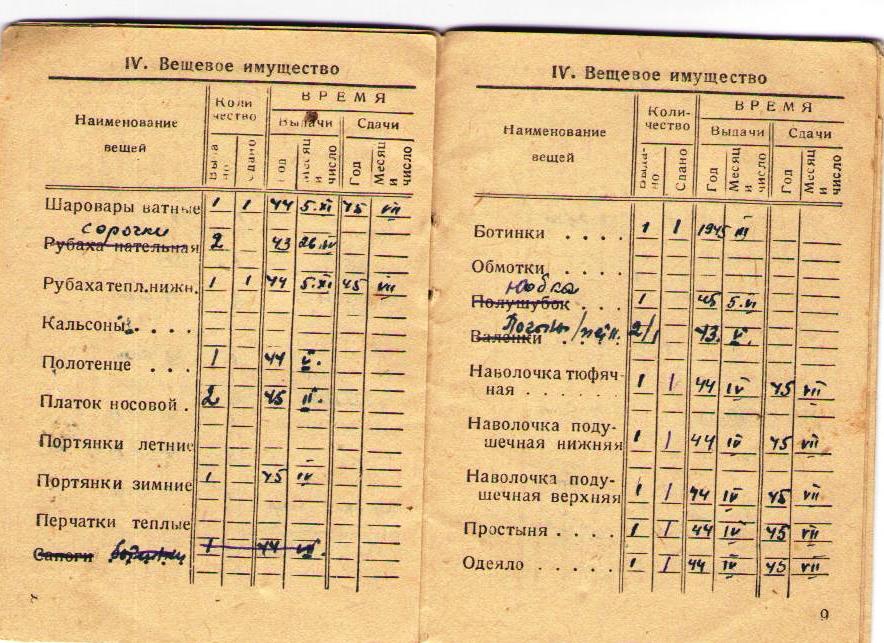 IV. Вещевое имущество
Наименование вещей
Коли чество
ВРЕМЯ
Выдачи
Сдачи
Выда но
Сдано
Год
Месяц и число
Год
Месяц и число
Шаровары ватные 1 1 44 5.XI 45 VII
сорочки
Рубаха нательная 2 43 26.IV
Рубаха тепл. нижн. 1 1 44 5.XI 45 VII
Кальсоны . . . .
Полотенце . . . 1 44 V.
Платок носовой . 2 45 II.
Портянки летние
Портянки зимние 1 45 IV
Перчатки теплые
Сапоги ботинки 1 44
8
IV. Вещевое имущество
Наименование вещей
Коли-чество
ВРЕМЯ
Выдачи
Сдачи
Выда-но
Сдано
Год
Месяц и число
Год
Месяц и число
Ботинки . . . . 1 1 1945 III
Обмотки . . . .
Юбка
Полушубок . . 1 45 5.VI
Погоны/пет.
Валенки . . . 2/1 43. V.
Наволочка тюфяч-
ная . . . . . . . 1 1 44 IV 45 VII
Наволочка поду-
шечная нижняя 1 1 44 IV 45 VII
Наволочка поду-
шечная верхняя 1 1 44 IV 45 VII
Простыня . . . . 1 1 44 IV 45 VII
Одеяло . . . . . 1 1 44 IV 45 VII
9